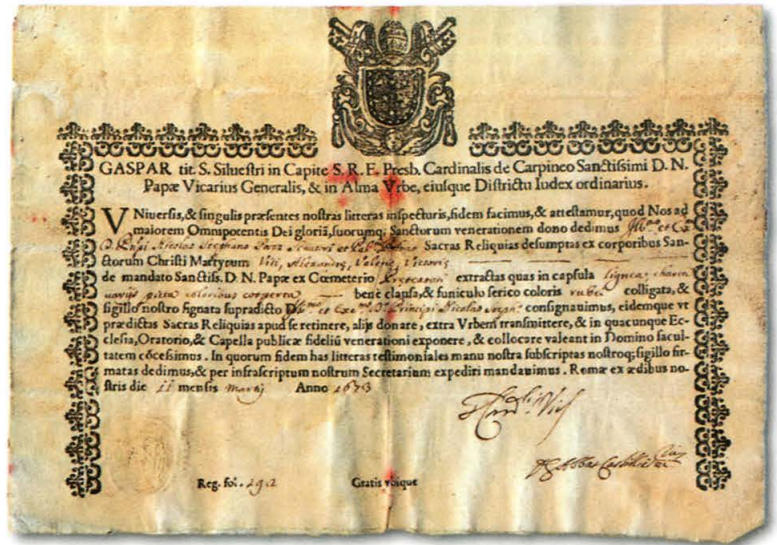 GASPAR tit. S. Siluestri in Capite S. R. E. Presb. Cardinalis de Carpineo Sanctissimi D. N.
Papæ Vicarius Generalis, & in Alma Vrbe, eiusque Districtu Iudex ordinarius.
VNiuersis, & singulis præsentes nostras litteras inspecturis, fidem facimus, & attestamur, quod Nos ad
maiorem Omnipotentis Dei gloriã, suorumq; Sanctorum venerationem dono dedimus
Sacras Reliquias desumptas ex corporibus San-
ctorum Christi Martyrum Viti, Alexandri, Valerij, Victoris
de mandato Sanctiss. D. N. Papæ ex Cœmeterio extractas quas in capsula lignea, charta
varijs coloribus cooperta bene clausa, & funiculo serico coloris rubei colligata, &
sigillo nostro signata supradicto Principi Nicolao consignauimus, eidemque vt
prædictas Sacras Reliquias apud se retinere, alijs donare, extra Vrbem transmittere, & in quacunque Ec-
clesia, Oratorio, & Capella publicæ fideliũ venerationi exponere, & collocare valeant in Domino facul-
tatem cõcessimus. In quorum fidem has litteras testimoniales manu nostra subscriptas nostroq; sigillo fir-
matas dedimus, & per infrascriptum nostrum Secretarium expediri mandauimus. Romæ ex ædibus no-
stris die 11 mensis Martij Anno 1673
Reg. fol. 292 Gratis vbique